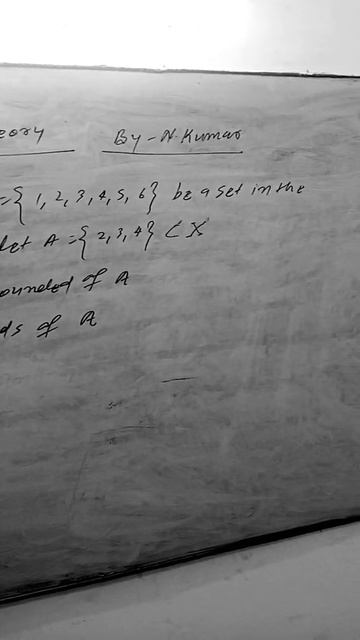 eory By-N.Kumar
={1,2,3,4,5,6} be a set in the
let A={2,3,4} ⊂ X
ounded of A
ds of A